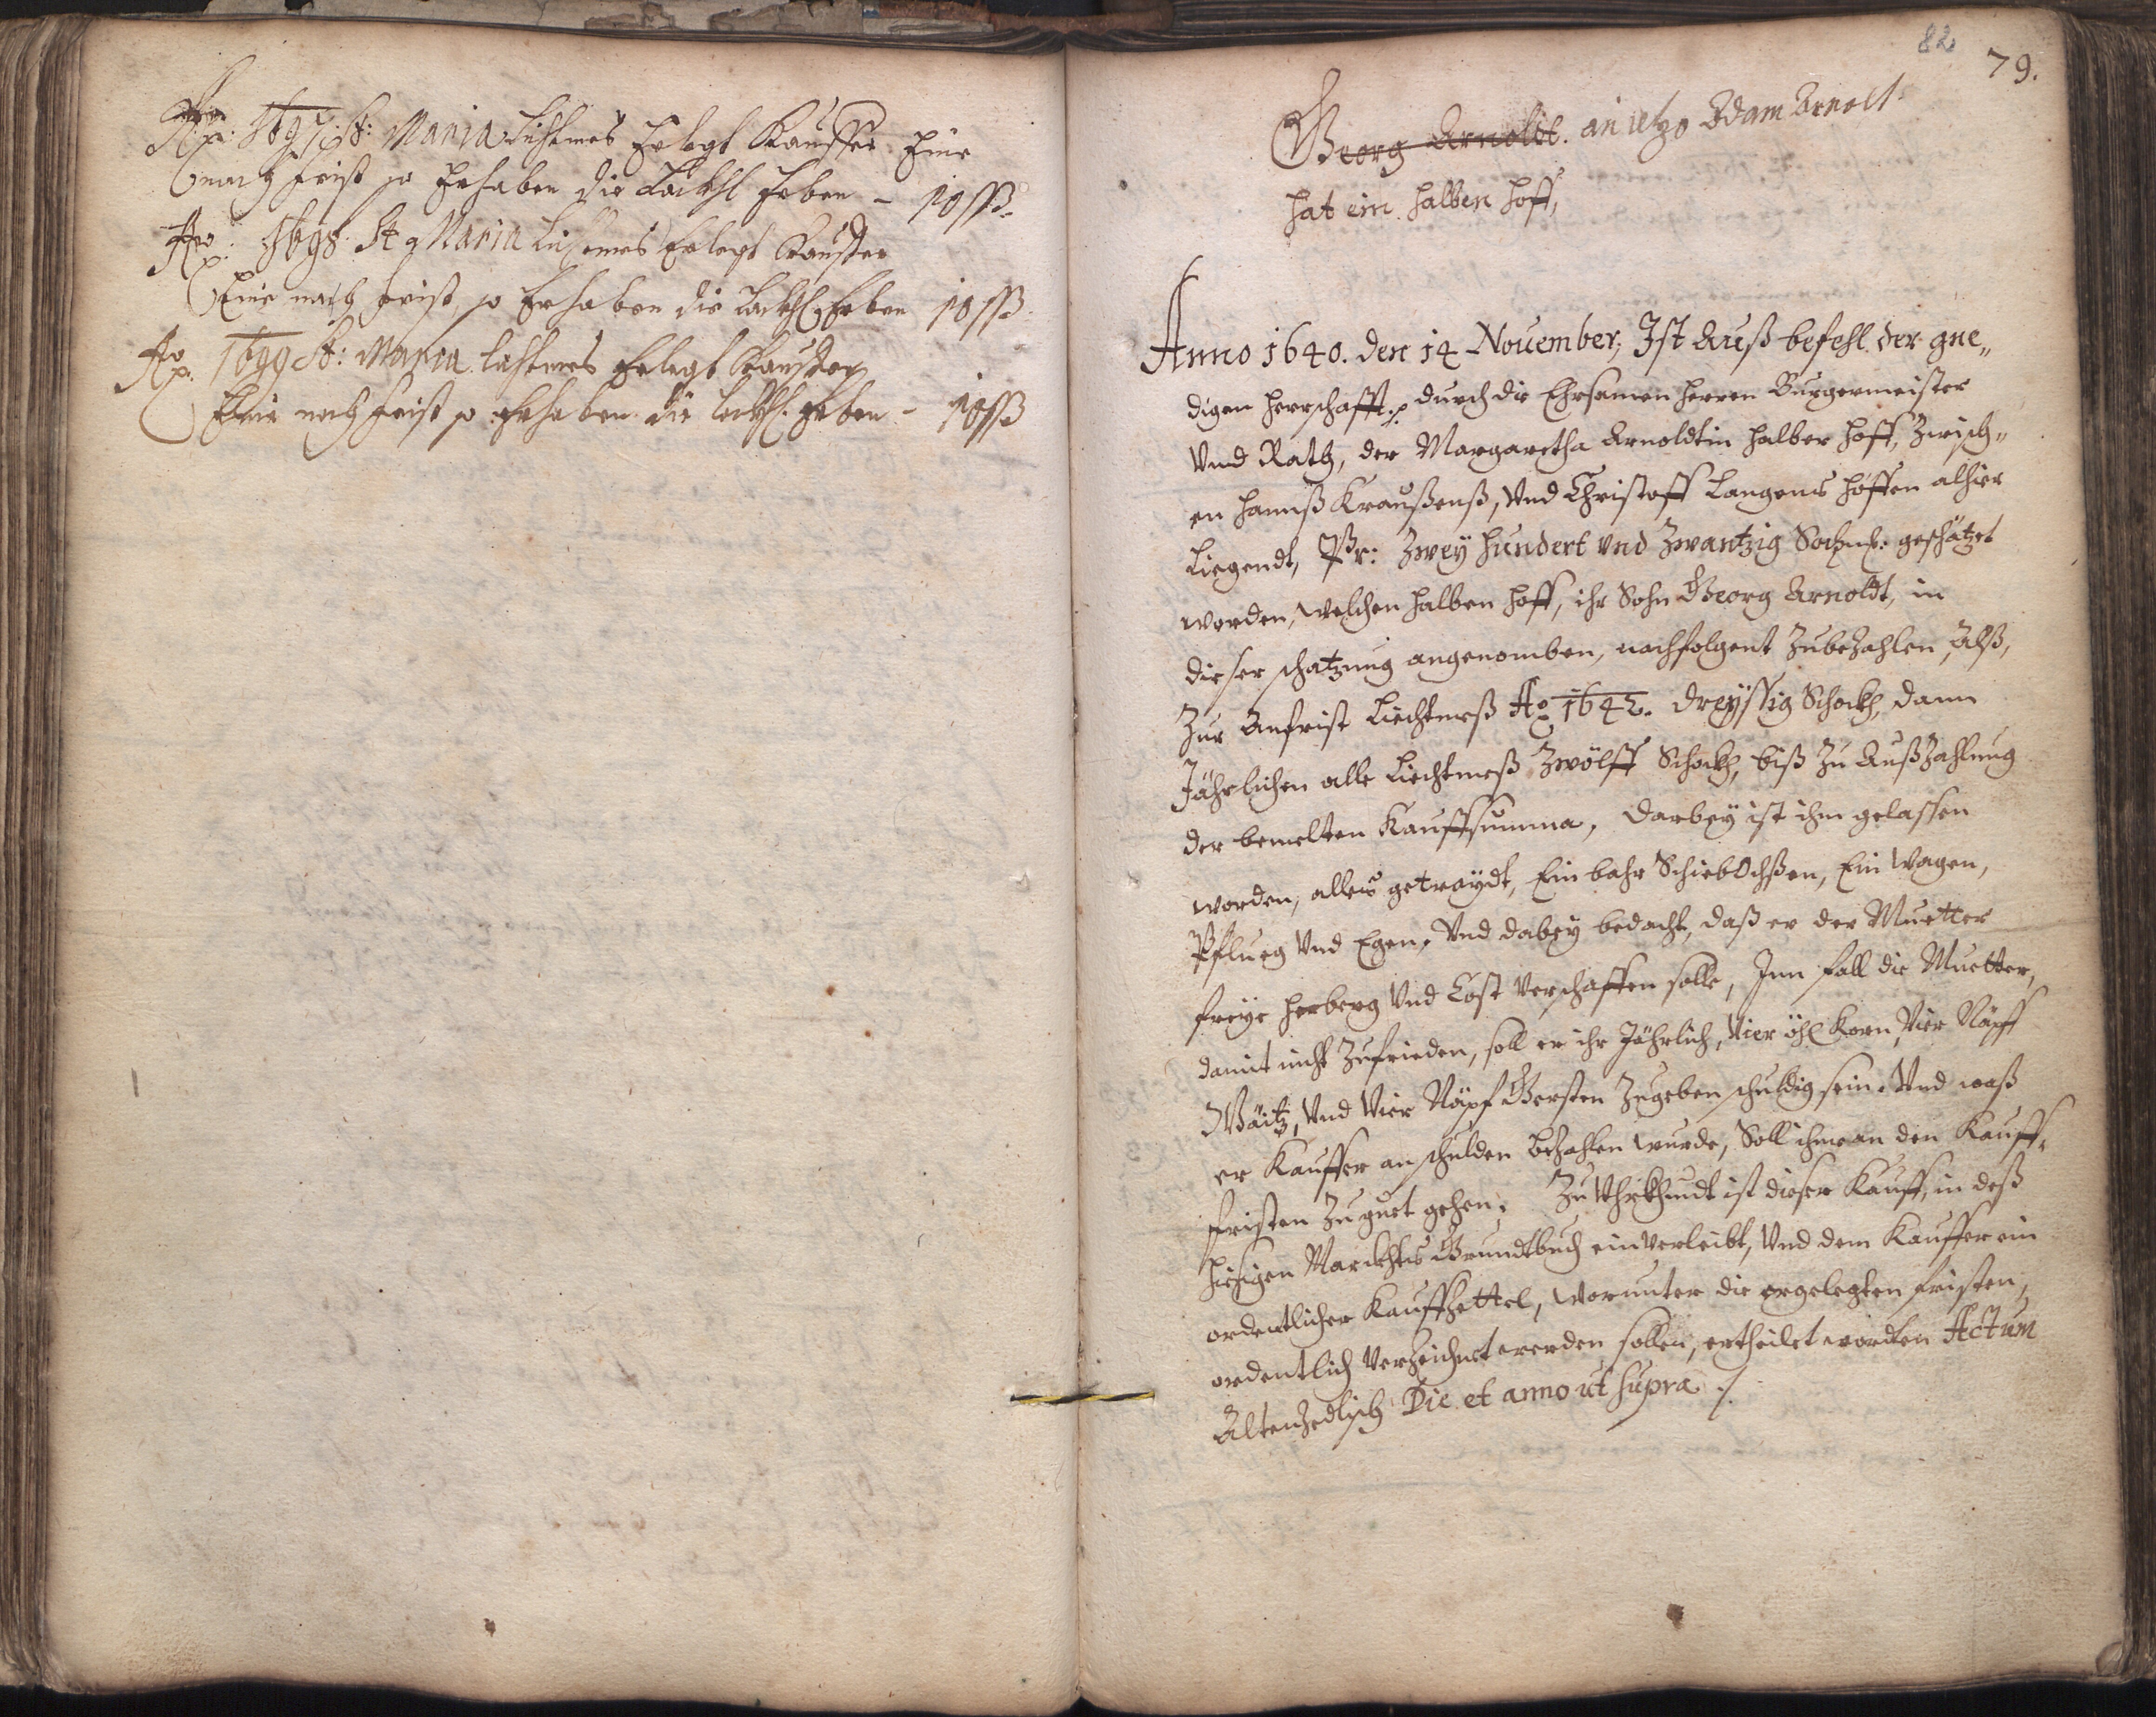 Ao: 1697 St: Maria Lichtmes Erlegt Kauffer Eine
nach frist so Erhaben die Erben – 10 ßß.
Ao: 1698. St Maria Lichtmes Erlegt Kauffer
Eine nach frist, so Erhaben die Erben 10 ßß.
Ao: 1699 St: Maria lichtmes Erlegt Kauffer
Eine nach frist so Erhaben die Erben – 10 ßß
82
79.
Georg Arnoldt. an ietzo Adam Arnolt.
hat ein halben hoff,
Anno 1640. den 14 Nouember, Ist Auß befehl der gne„
digen herrschafft durch die Ehrsamen herren Burgermeister
Vnd Rath, der Margaretha Arnoldtin halber hoff, Zwisch„
en hannß Kraußenß, Vnd Christoff Langens höffen alhier
Liegendt, Pr: Zwey hundert vnd Zwantzig geschätzet
worden, welchen halben hoff, ihr Sohn Georg Arnoldt, in
dieser schatzung angenomben, nachfolgent Zubezahlen, Alß,
Zur Anfrist Liechtmeß Ao 1642. dreyssig Schockh, dann
Jährlichen alle Liechtmeß Zwölff Schockh, biß Zu Außzahlung
der bemelten Kauffsumma, darbey ist ihm gelassen
worden, alles getraydt, Ein bahr Schiebochßen, Ein wagen,
Pflueg Vnd Egen, Vnd dabey bedacht, daß er der Muetter
freye herberg Vnd Cost Verschaffen solle, Inn fall die Muetter,
damit nicht Zufrieden, soll er ihr Jährlich, Vier Korn, Vier Näpff
Waitz, Vnd Vier Näpf Gersten Zugeben schuldig sein. Vnd waß
er Kauffer an schulden bezahlen wurde, Soll ihme an den Kauff„
fristen Zu guet gehen, Zu Vhrkhundt ist dieser Kauff, in deß
hiesigen Marckhts Grundtbuch einverleibt, Vnd dem Kauffer ein
ordentlicher Kauffzettel, worunter die ergelegten fristen,
ordentlich Verzeichnet werden sollen, ertheilet worden Actum
Altenzedlisch Die et anno ut supra ./.